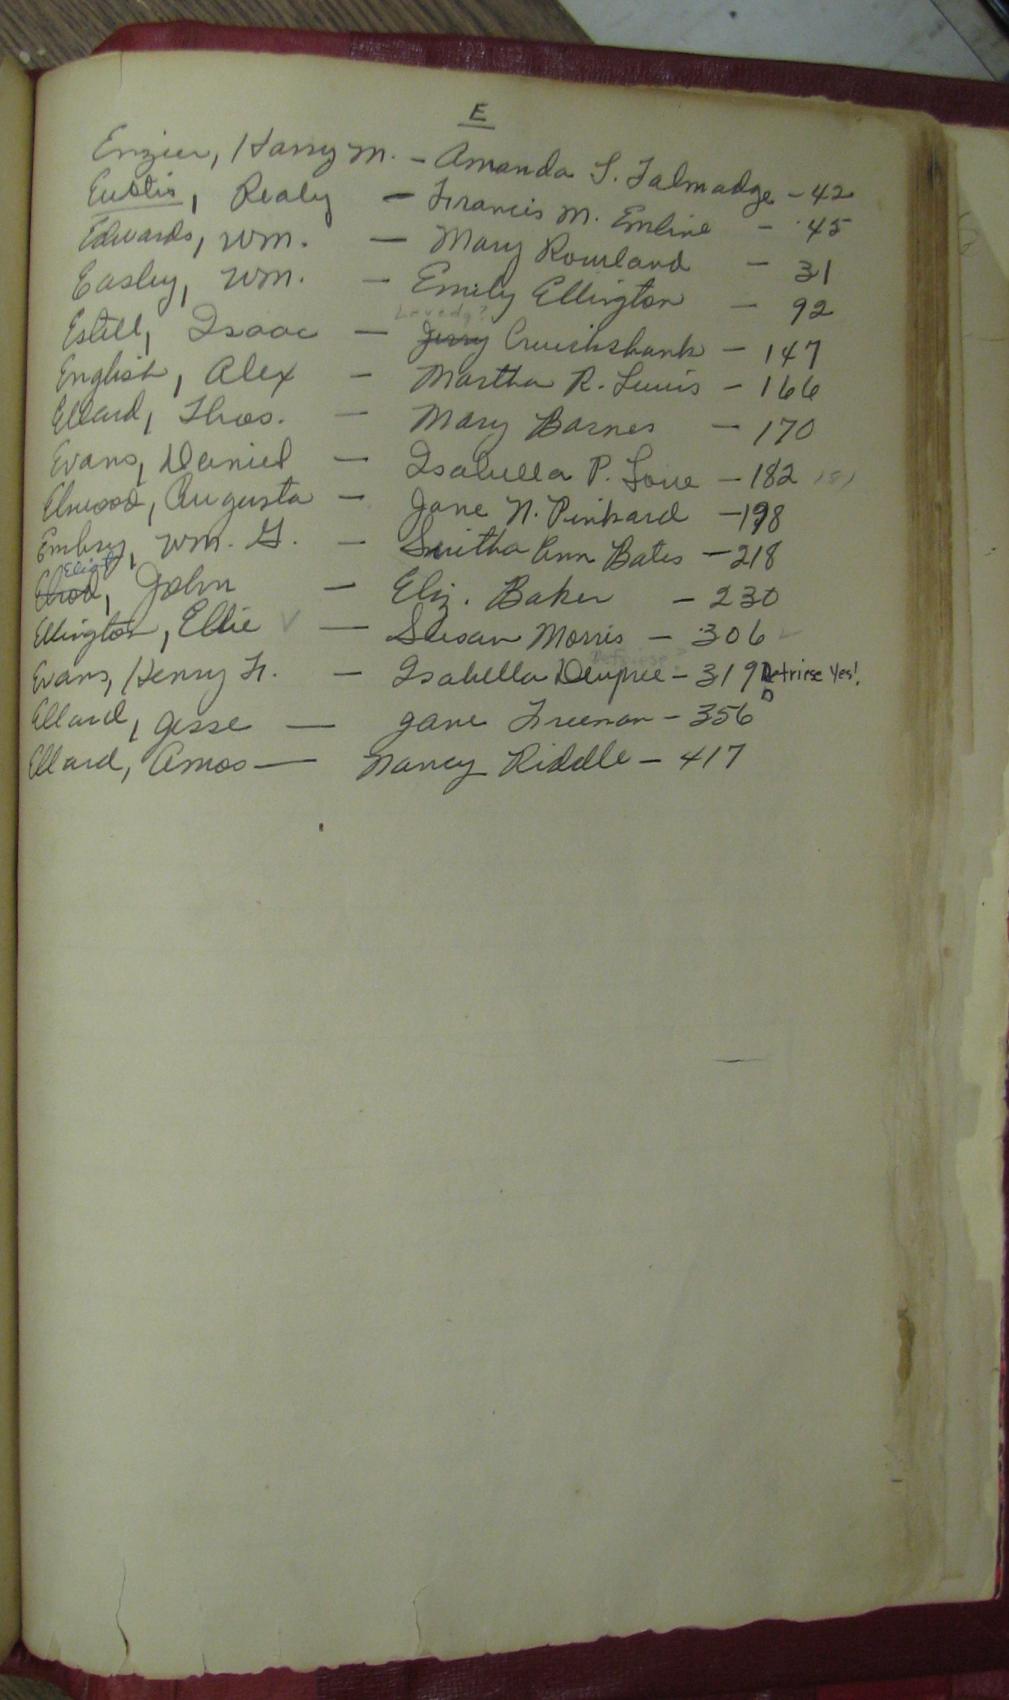 E
Enzier, Harry M. - Amanda S. Talmadge - 42
Eustis, Realy - Francis M. Emline - 45
Edwards, Wm. - Mary Rowland - 31
Easley, Wm. - Emily Ellington - 92
Lovedy?
Estill, Isaac - Jerry Cruickshank - 147
English, Alex - Martha R. Lewis - 166
Ellard, Thos. - Mary Barnes - 170
Evans, Daniel - Isabella P. Love - 182 181
Elwood, Augusta - Jane N. Pinkard - 198
Embry, Wm. G. - Ann Bates - 218
Eliot
Elrod, John - Eliz. Baker - 230
Ellington, Ellie ✓ - Susan Morris - 306 ✓
Evans, Henry Fr. - Isabella Deupree - 319 Detriese Yes!
Ellard, Jesse - Jane Freeman - 356
Ellard, Amos - Nancy Riddle - 417